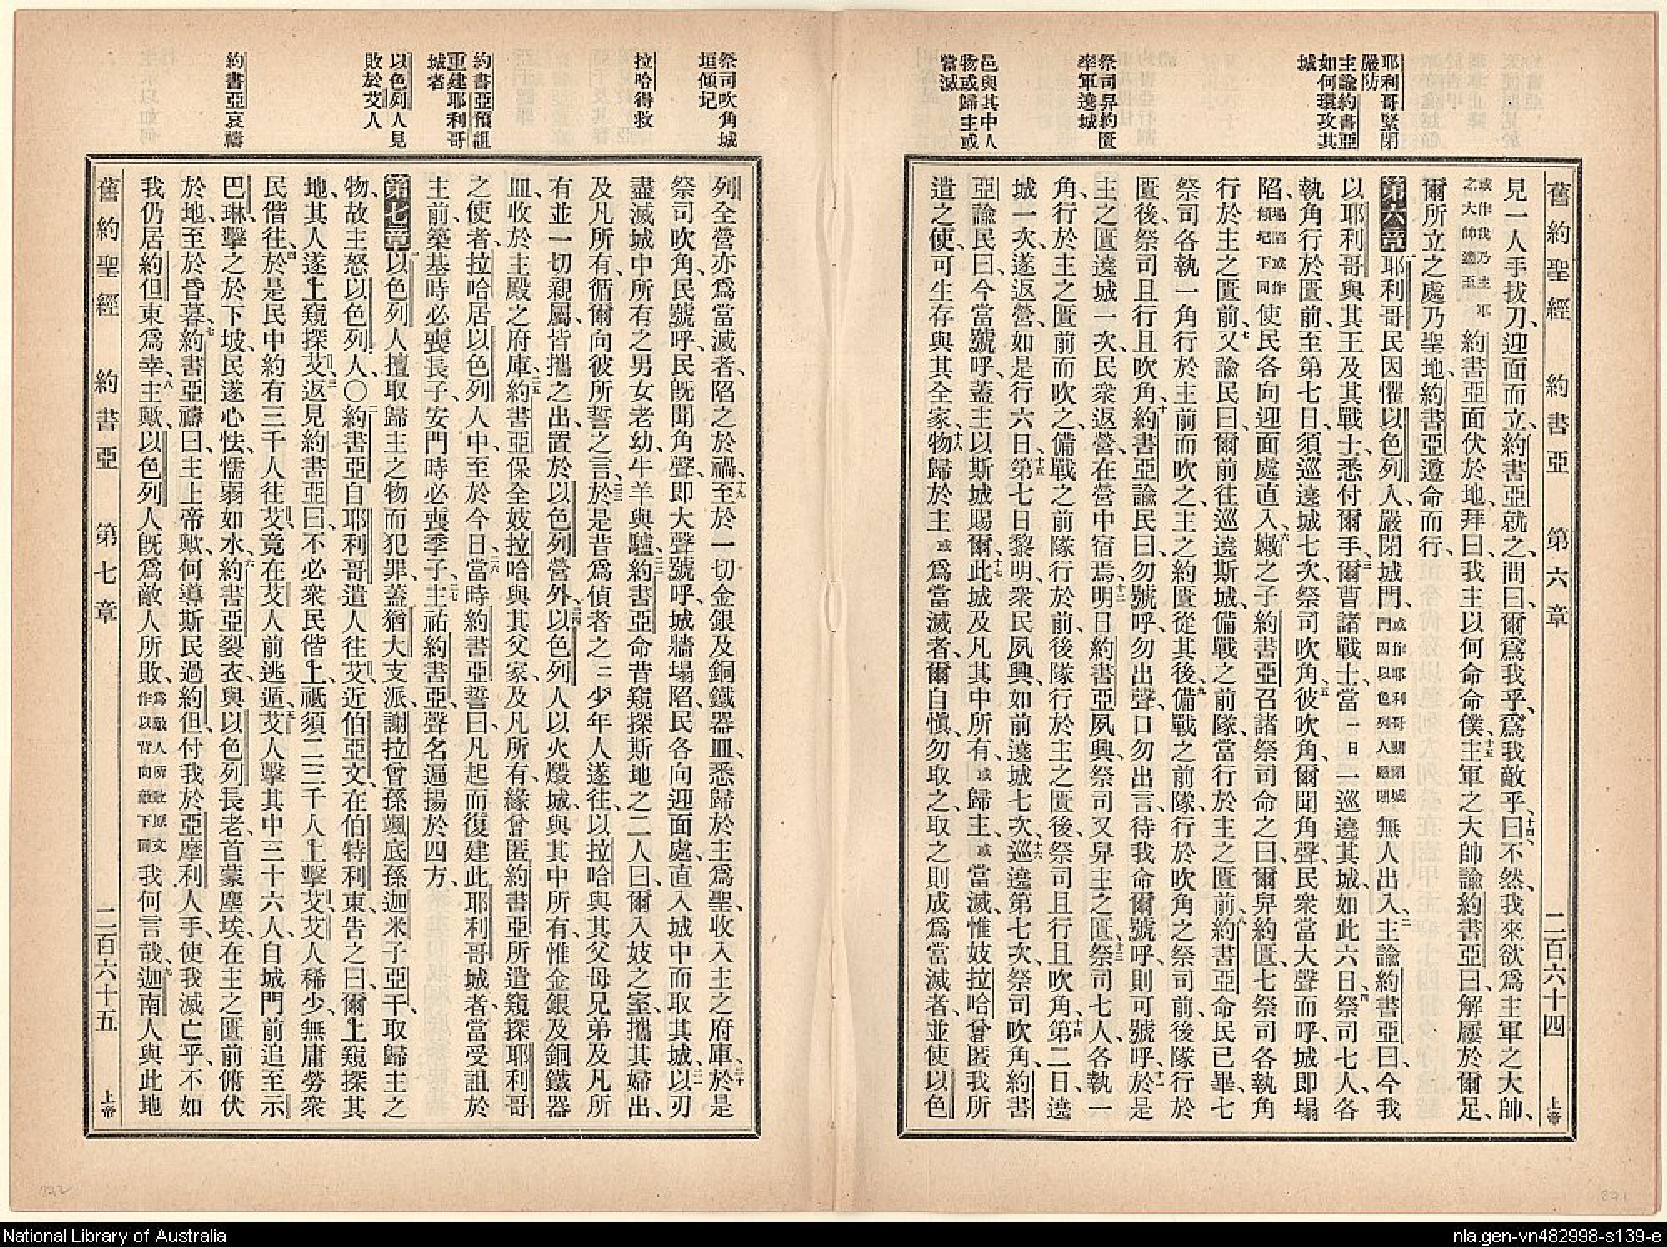 耶利哥緊閉
嚴防
主諭約書亞
如何環攻其
城
祭司舁約匱
率軍遶城
邑與其中人
物或歸主或
當滅
舊約聖經 約書亞 第六章 二百六十四 上帝
見一人手拔刀、迎面而立、約書亞就之、問曰、爾爲我乎、爲我敵乎、十四曰、不然、我來欲爲主軍之大帥、
或作我乃主軍之大帥適至 約書亞面伏於地、拜曰、我主以何命命僕、十五主軍之大帥諭約書亞曰、解屨於爾足、
爾所立之處乃聖地、約書亞遵命而行、
第六章 一耶利哥民因懼以色列人、嚴閉城門、或作耶利哥關閉城門因以色列人嚴閉 無人出入、二主諭約書亞曰、今我
以耶利哥與其王及其戰士、悉付爾手、三爾曹諸戰士、當一日一巡遶其城、如此六日、四祭司七人、各
執角行於匱前、至第七日、須巡遶城七次、祭司吹角、五彼吹角、爾聞角聲、民衆當大聲而呼、城卽塌
陷、塌陷或作傾圮下同 使民各向迎面處直入、六嫩之子約書亞召諸祭司命之曰、爾舁約匱、七祭司各執角
行於主之匱前、七又諭民曰、爾前往巡遶斯城、備戰之前隊、當行於主之匱前、八約書亞命民已畢、七
祭司各執一角行於主前而吹之、主之約匱從其後、九備戰之前隊、行於吹角之祭司前、後隊行於
匱後、祭司且行且吹角、十約書亞諭民曰、勿號呼、勿出聲、口勿出言、待我命爾號呼、則可號呼、十一於是
主之匱遶城一次、民衆返營、在營中宿焉、十二明日約書亞夙興、祭司又舁主之匱、十三祭司七人、各執一
角、行於主之匱前而吹之、備戰之前隊行於前、後隊行於主之匱後、祭司且行且吹角、十四第二日、遶
城一次、遂返營、如是行六日、十五第七日黎明、衆民夙興、如前遶城七次、十六巡遶第七次、祭司吹角、約書
亞諭民曰、今當號呼、蓋主以斯城賜爾、十七此城及凡其中所有、或歸主、或當滅、惟妓拉哈曾匿我所
遣之使、可生存與其全家、十八物歸於主、或爲當滅者、爾自愼、勿取之、取之則成爲當滅者、並使以色
祭司吹角城
垣傾圮
拉哈得救
約書亞預詛
重建耶利哥
城者
以色列人見
敗於艾人
約書亞哀禱
列全營亦爲當滅者、陷之於禍、十九至於一切金銀及銅鐵器皿、悉歸於主爲聖、收入主之府庫、二十於是
祭司吹角、民號呼、民旣聞角聲、卽大聲號呼、城牆塌陷、民各向迎面處、直入城中而取其城、二一以刃
盡滅城中所有之男女老幼、牛羊與驢、二二約書亞命昔窺探斯地之二人曰、爾入妓之室、攜其婦出、
及凡所有、循爾向彼所誓之言、二三於是昔爲偵者之二少年人遂往、以拉哈與其父母兄弟、及凡所
有、並一切親屬、皆攜之出、置於以色列營外、二四以色列人以火燬城、與其中所有、惟金銀及銅鐵器
皿、收於主殿之府庫、二五約書亞保全妓拉哈與其父家、及凡所有、緣曾匿約書亞所遣窺探耶利哥
之使者、拉哈居以色列人中、至於今日、二六當時約書亞誓曰、凡起而復建此耶利哥城者、當受詛於
主前、築基時必喪長子、安門時必喪季子、二七主祐約書亞、聲名遍揚於四方、
第七章 一以色列人擅取歸主之物而犯罪、蓋猶大支派、謝拉曾孫、颯底孫、迦米子亞干、取歸主之
物、故主怒以色列人、○二約書亞自耶利哥遣人往艾、近伯亞文、在伯特利東、告之曰、爾上窺探其
地、其人遂上窺探艾、三返見約書亞曰、不必衆民偕上、祇須二三千人上擊艾、艾人稀少、無庸勞衆
民偕往、四於是民中約有三千人往艾、竟在艾人前逃遁、五艾人擊其中三十六人、自城門前追至示
巴琳、擊之於下坡、民遂心怯、懦弱如水、六約書亞裂衣、與以色列長老首蒙塵埃、在主之匱前俯伏
於地、至於昏暮、七約書亞禱曰、主上帝歟、何導斯民過約但、付我於亞摩利人手、使我滅亡乎、不如
我仍居約但東爲幸、八主歟、以色列人旣爲敵人所敗、爲敵人所敗原文作以背向敵下同 我何言哉、九迦南人與此地
舊約聖經 約書亞 第七章 二百六十五 上帝
National Library of Australia
nla.gen-vn482998-s139-e